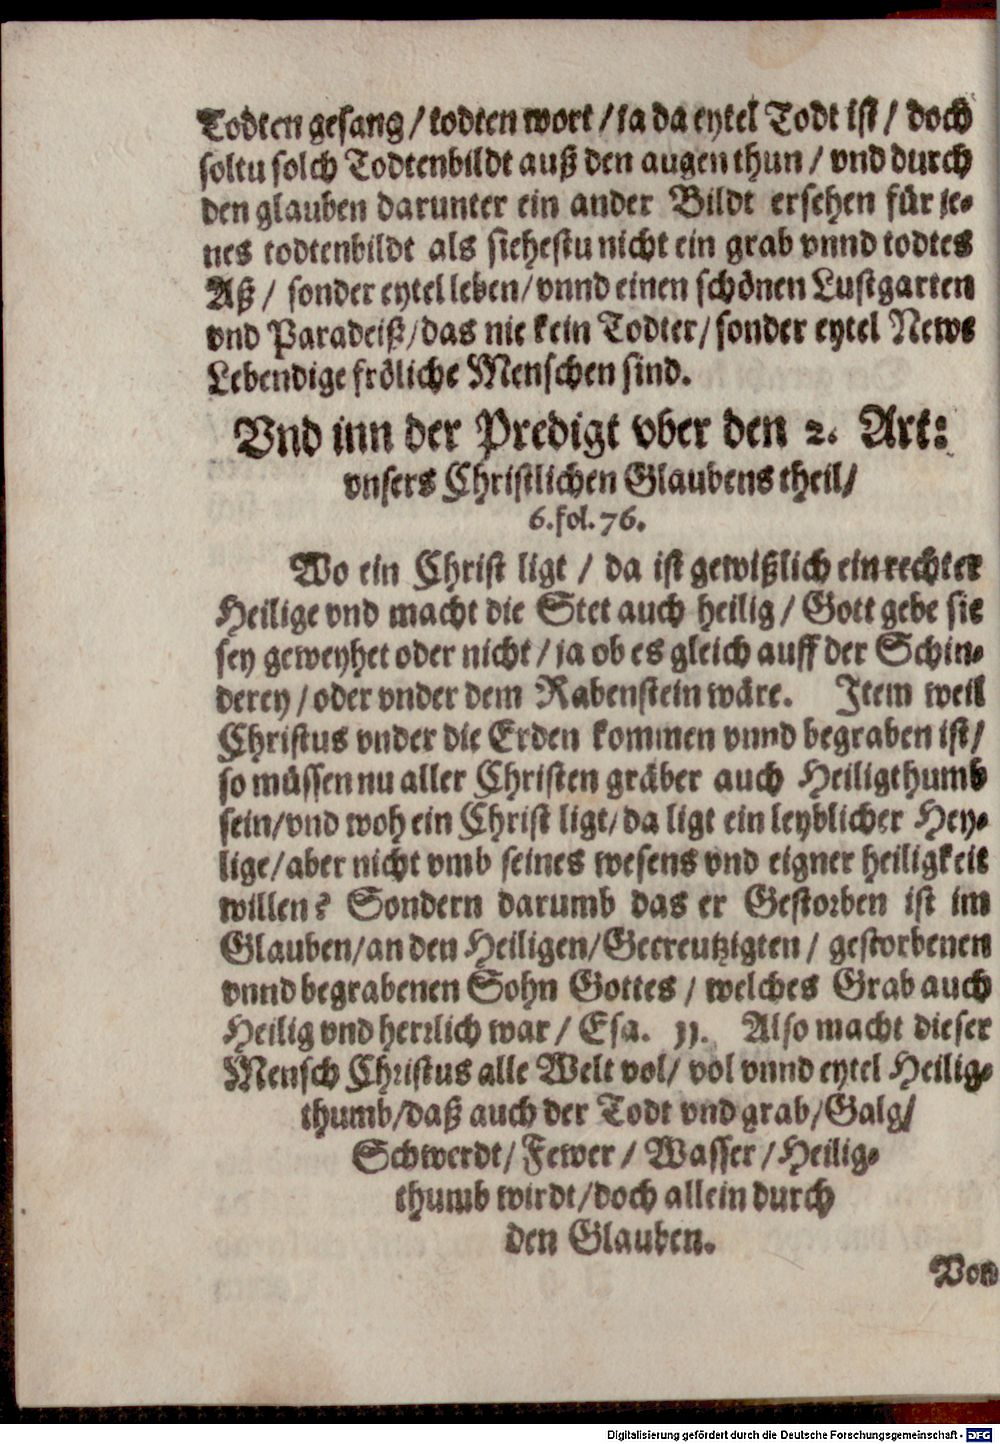 Todten gesang / todten wort / ja da eytel Todt ist / doch
soltu solch Todtenbildt auß den augen thun / vnd durch
den glauben darunter ein ander Bildt ersehen für je-
nes todtenbildt als siehestu nicht ein grab vnnd todtes
Aß / sonder eytel leben / vnnd einen schönen Lustgarten
vnd Paradeiß / das nie kein Todter / sonder eytel News
Lebendige fröliche Menschen sind.
Vnd inn der Predigt vber den 2. Art:
vnsers Christlichen Glaubens theil /
6. fol. 76.
Wo ein Christ ligt / da ist gewißlich ein rechter
Heilige vnd macht die Stet auch heilig / Gott gebe sie
sey geweyhet oder nicht / ja ob es gleich auff der Schin-
derey / oder vnder dem Rabenstein wäre. Item weil
Christus vnder die Erden kommen vnnd begraben ist /
so müssen nu aller Christen gräber auch Heiligthumb
sein / vnd woh ein Christ ligt / da ligt ein leyblicher Hey-
lige / aber nicht vmb seines wesens vnd eigner heiligkeit
willen? Sondern darumb das er Gestorben ist im
Glauben / an den Heiligen / Gecreutzigten / gestorbenen
vnnd begrabenen Sohn Gottes / welches Grab auch
Heilig vnd herrlich war / Esa. 11. Also macht dieser
Mensch Christus alle Welt vol / vol vnnd eytel Heilig-
thumb / daß auch der Todt vnd grab / Galg /
Schwerdt / Fewer / Wasser / Heilig-
thumb wirdt / doch allein durch
den Glauben.
Von
Digitalisierung gefördert durch die Deutsche Forschungsgemeinschaft - DFG